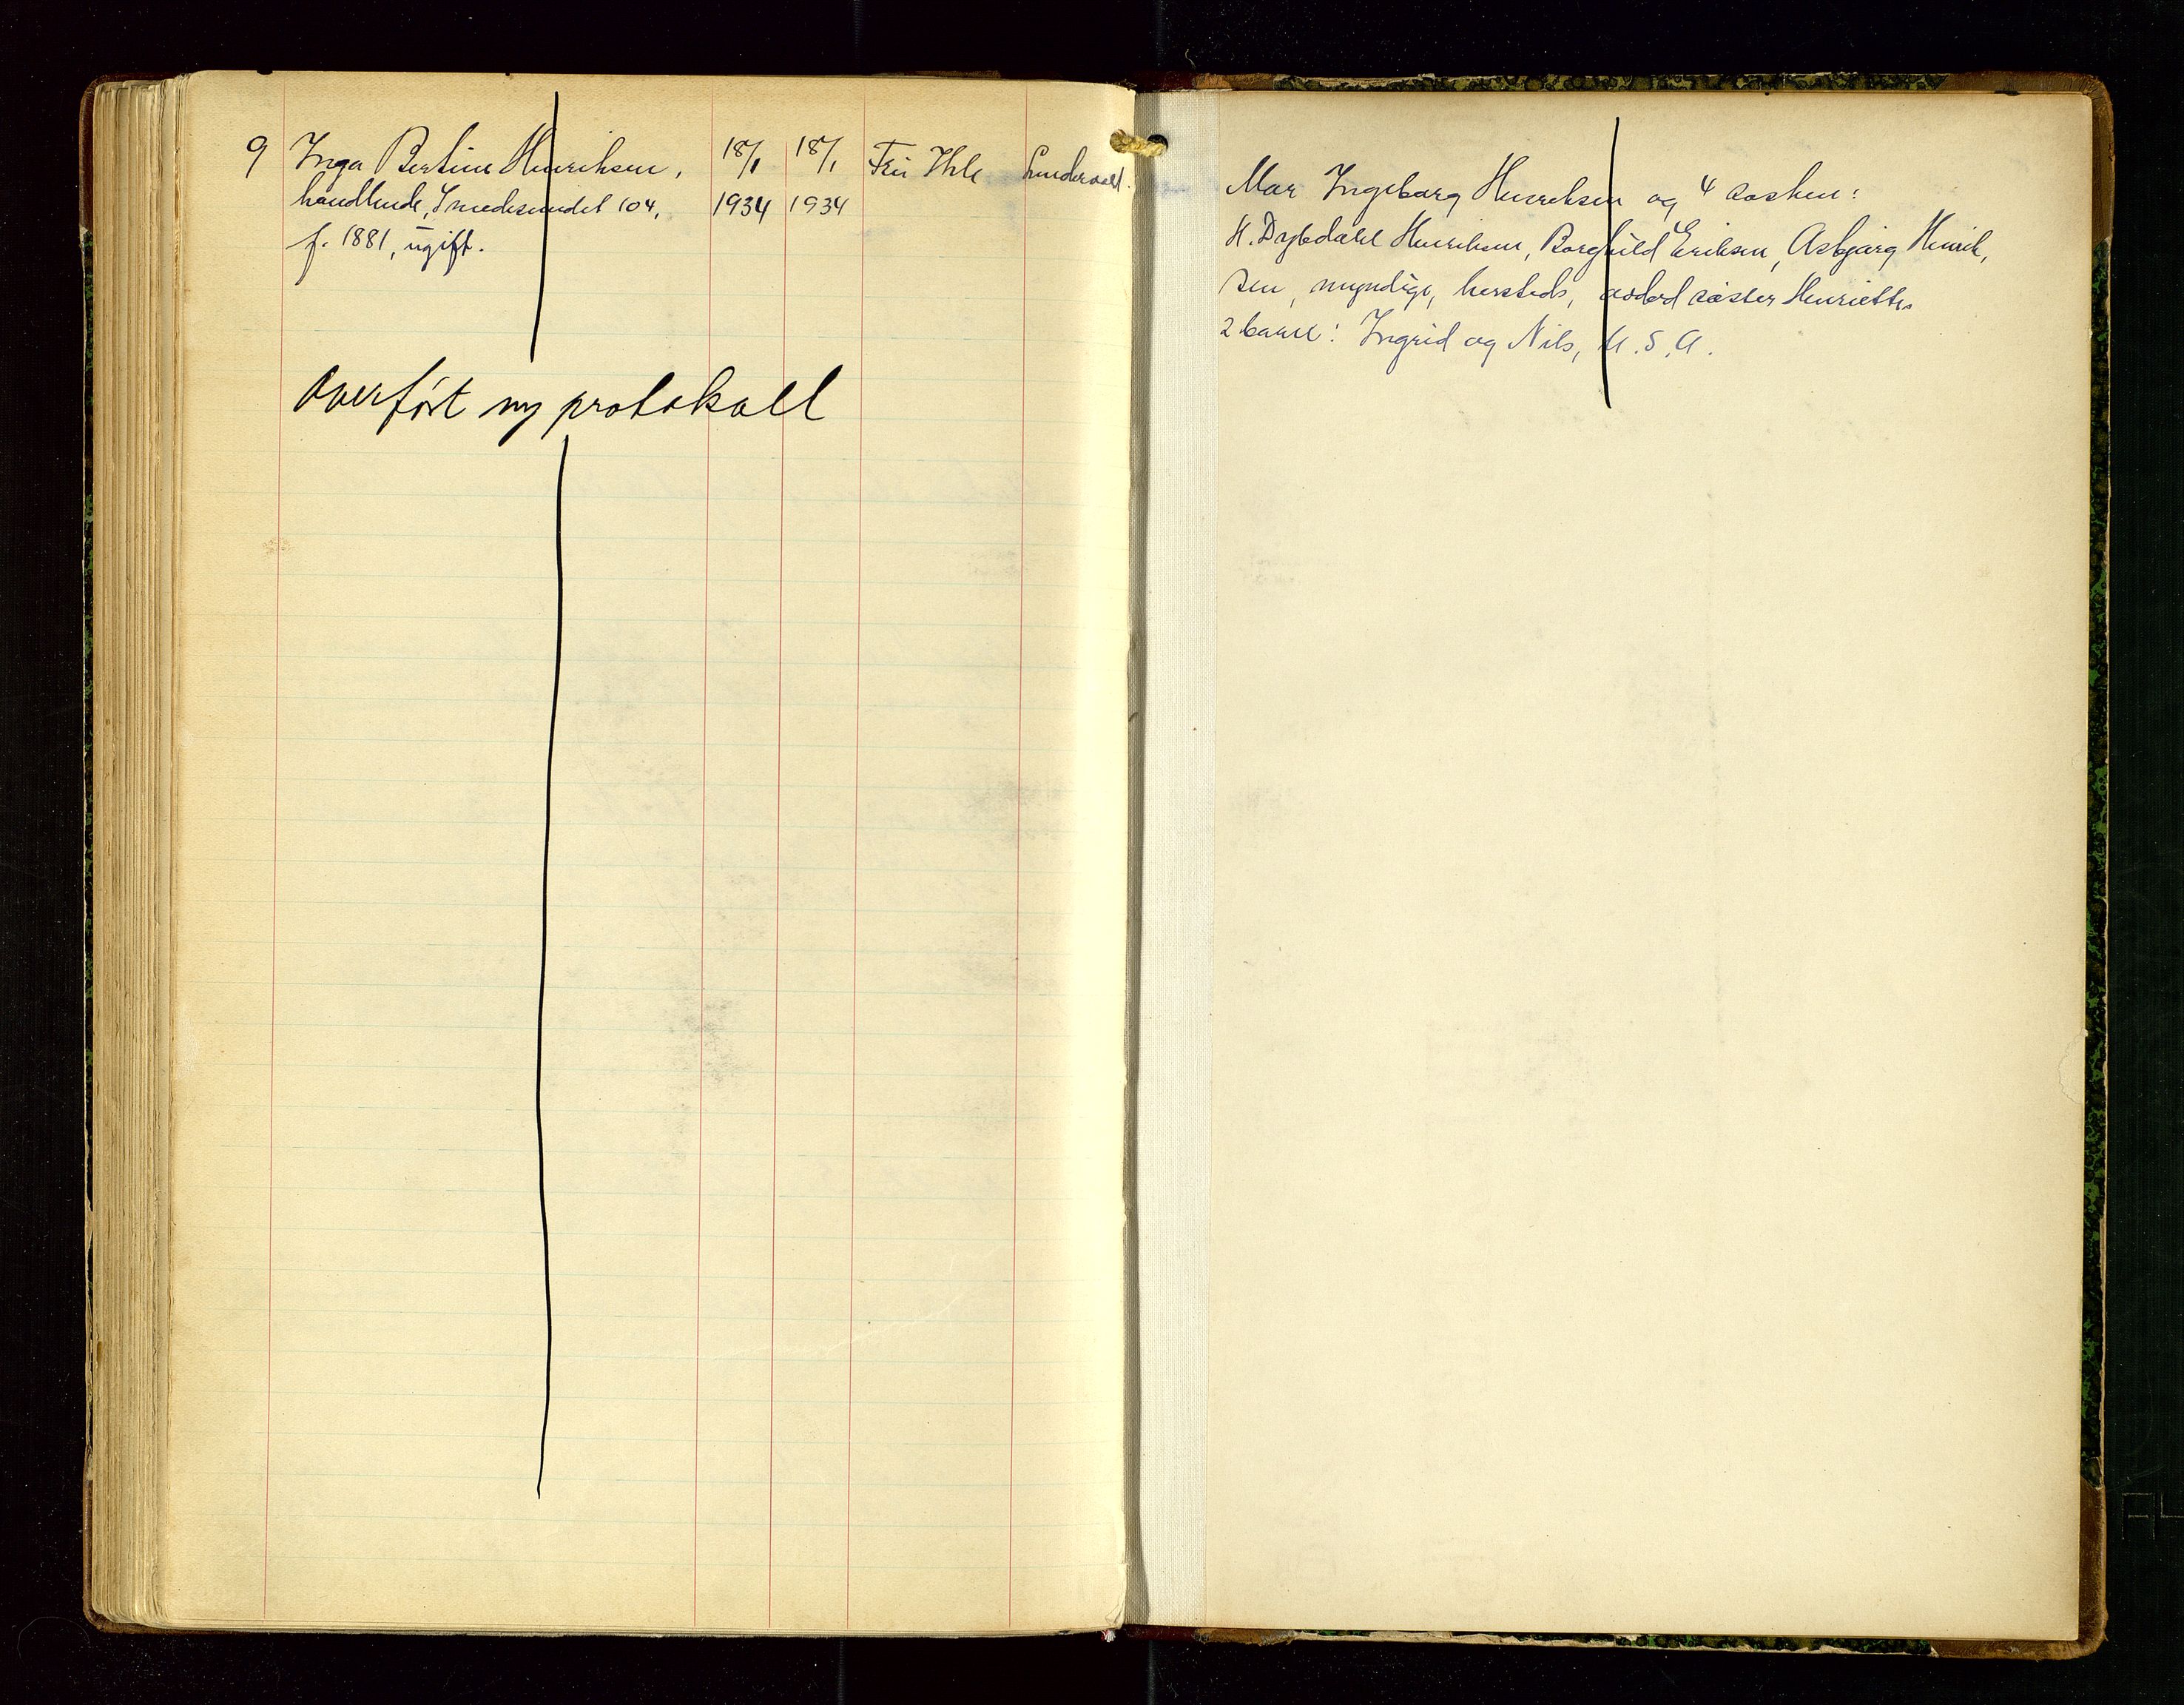 9 Inga Bertine Henriksen, 18/1 18/1 Frü Ihle
handlende, Smedesundet 104, 1934 1934
f. 1881, ugift.
Overført ny protokoll
Mor Ingeborg Henriksen og 4 søsken:
H. Dybdahl Henriksen, Borghild Eriksen, Asbjørg Henrik,
sen, myndige, hersteds, avdød søster Henriettes
2 barn: Ingrid og Nils, U.S.A.